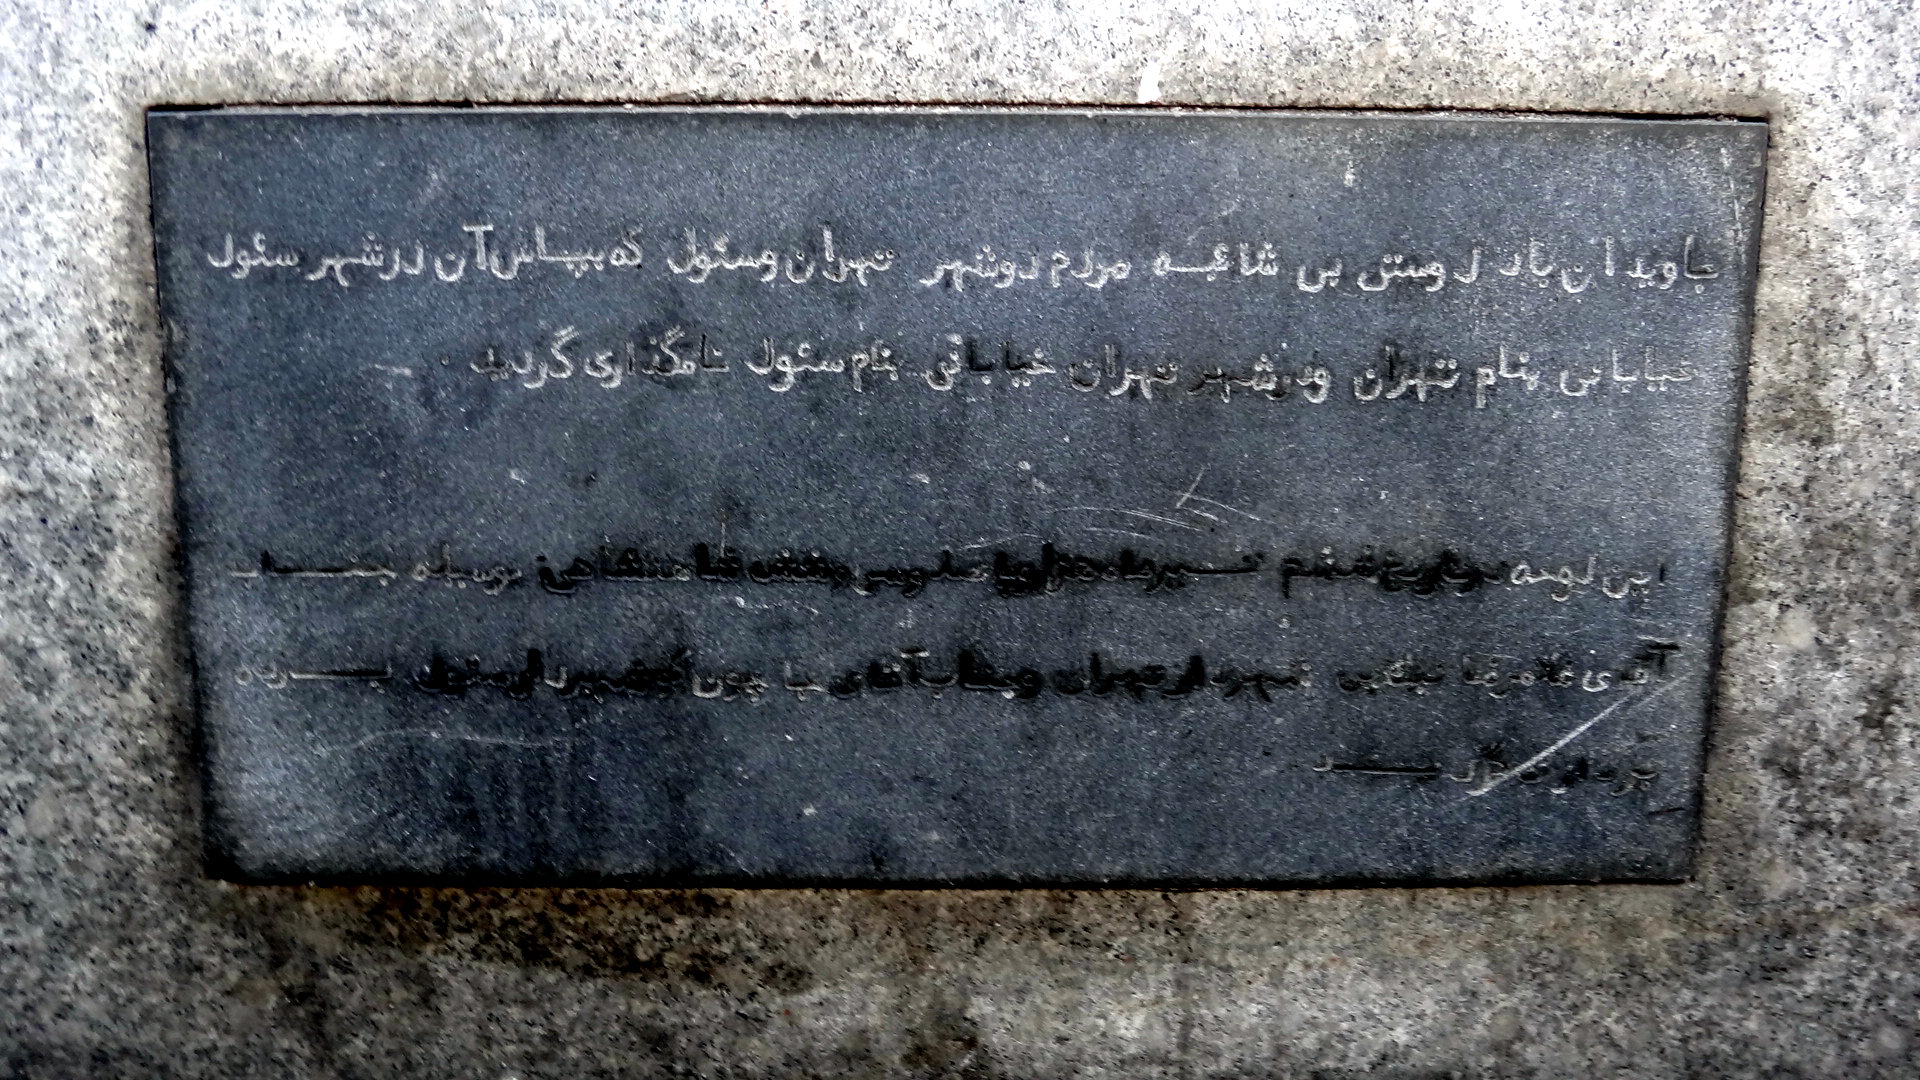 جاویدان باد دوستی بی شائبه مردم دوشهر تهران وسئول که بپاس آن درشهر سئول
خیابانی بنام تهران ودرشهر تهران خیابانی بنام سئول نامگذاری گردید.
این لوحه درتاریخ ششم تیرماه دوهزار شاهنشاهی بوسیله جناب
آقای غلامرضا نیک‌پی شهردار تهران وجناب آقای جا چون شهردار سئول پرده
برداری گردید